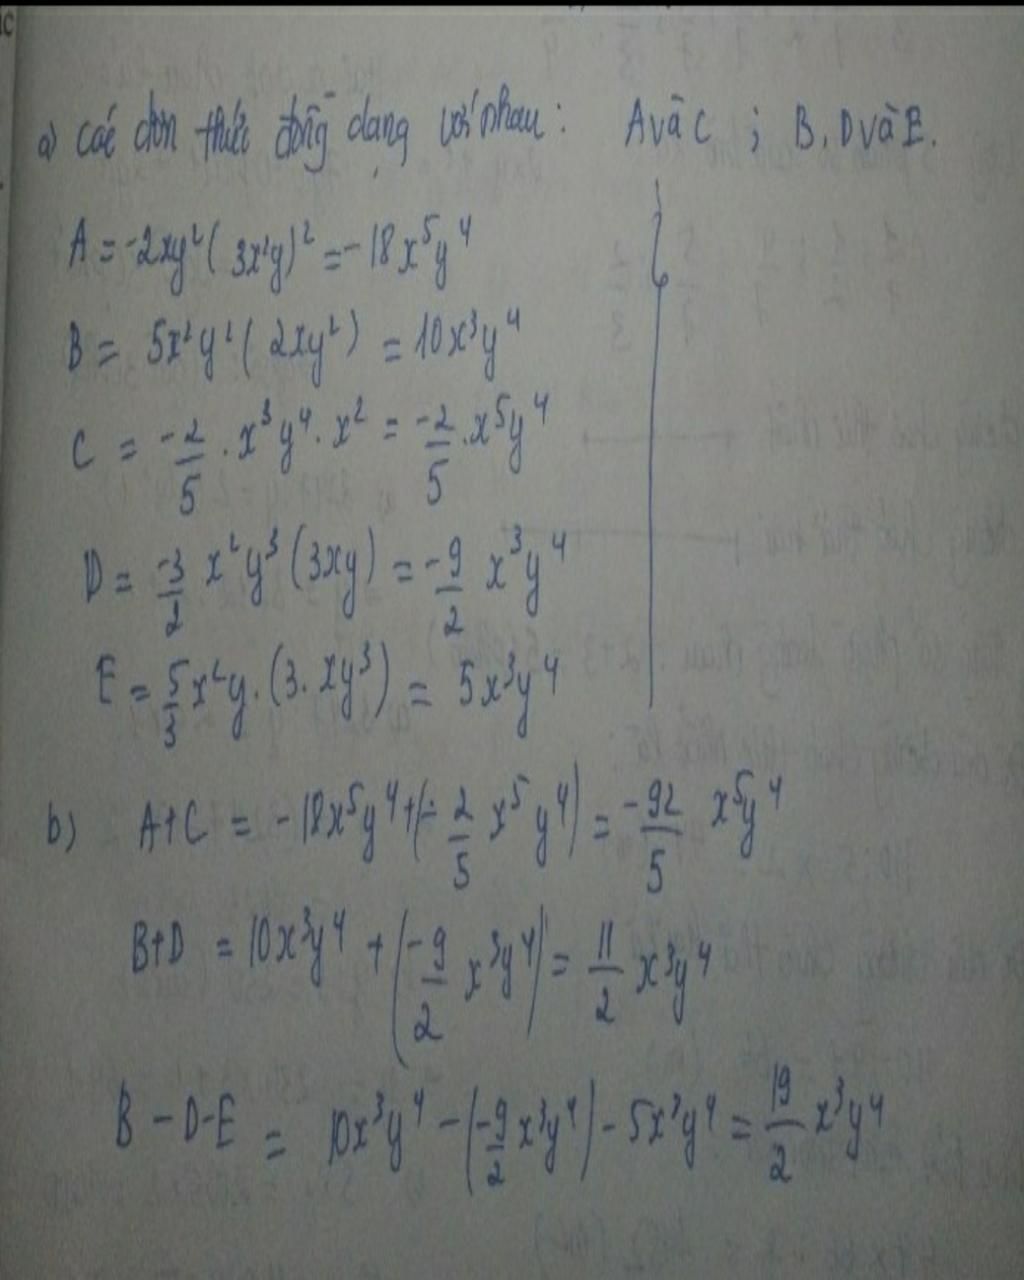 a) các đơn thức đồng dạng với nhau: A và C ; B, D và E.
A = -2xy²(3x²y)² = -18x⁵y⁴
B = 5x²y²(2xy²) = 10x³y⁴
C = -2/5 . x³y⁴ . x² = -2/5 . x⁵y⁴
D = -3/2 x²y³(3xy) = -9/2 x³y⁴
E = 5/3 x²y.(3.xy³) = 5x³y⁴
b) A+C = -18x⁵y⁴+(-2/5 x⁵y⁴) = -92/5 x⁵y⁴
B+D = 10x³y⁴ + (-9/2 x³y⁴) = 11/2 x³y⁴
B - D - E = 10x³y⁴ - (-9/2 x³y⁴) - 5x³y⁴ = 19/2 x³y⁴